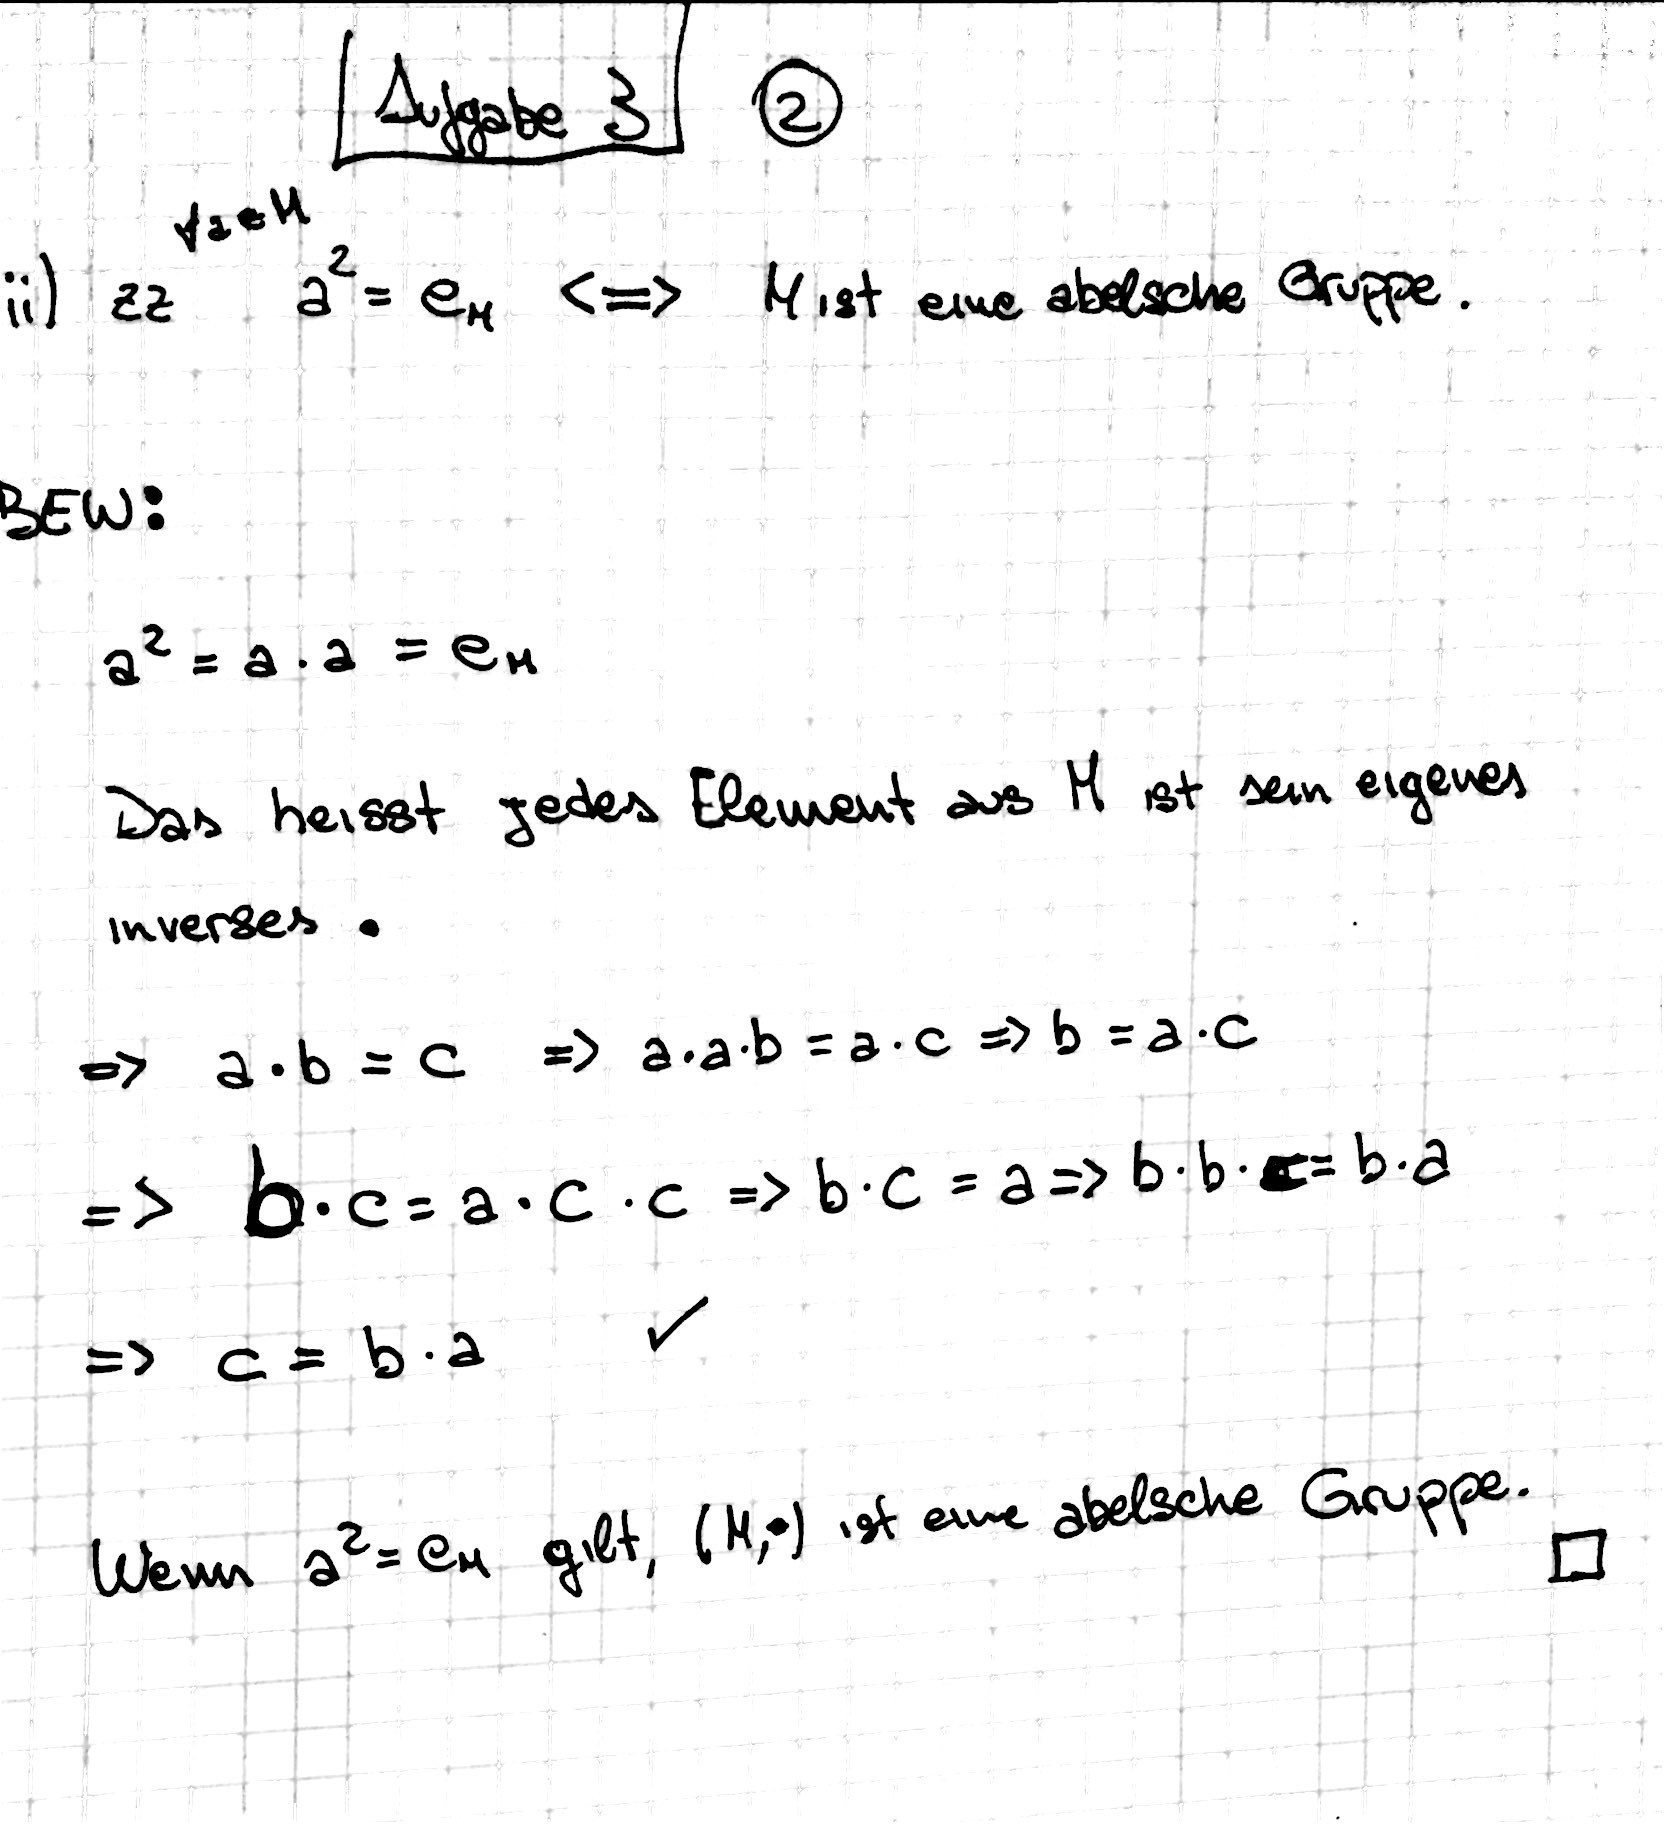 Aufgabe 3 ②
∀a∈M
ii) zz a² = e_M <=> M ist eine abelsche Gruppe.
BEW:
a² = a · a = e_M
Das heisst jedes Element aus M ist sein eigenes
inverses.
=> a · b = c => a · a · b = a · c => b = a · c
=> b · c = a · c · c => b · c = a => b · b · c = b · a
=> c = b · a ✓
Wenn a² = e_M gilt, (M, ·) ist eine abelsche Gruppe.
□